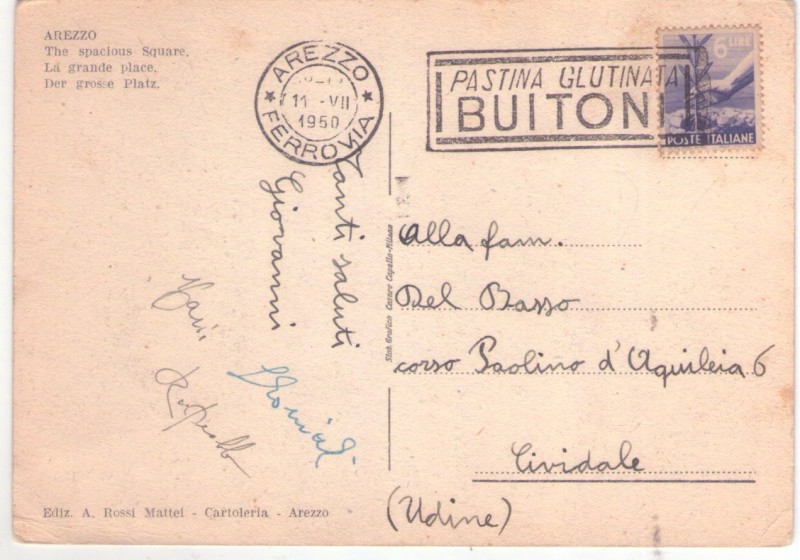 AREZZO
The spacious Square.
La grande place.
Der grosse Platz.
AREZZO
11 -VII
1950
FERROVIA
PASTINA GLUTINATA
BUITONI
6 LIRE
POSTE ITALIANE
Tanti saluti
Giovanni
Stab. Grafico Cesare Capello-Milano
Alla fam.
Del Basso
corso Paolino d'Aquileia 6
Cividale
(Udine)
Ediz. A. Rossi Mattei - Cartoleria - Arezzo